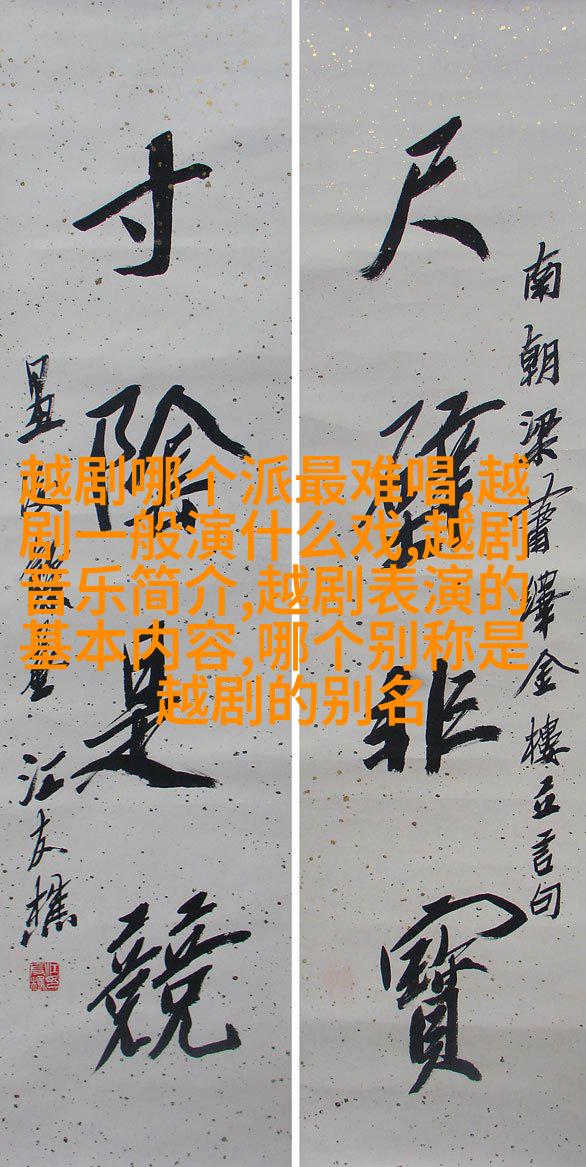 越剧哪个派最难唱,越
剧一般演什么戏,越剧
音乐简介,越剧表演的
基本内容,哪个别称是
越剧的别名
南朝梁蕭繹金樓立言句
尺璧非寶
寸陰是競
汪友樵